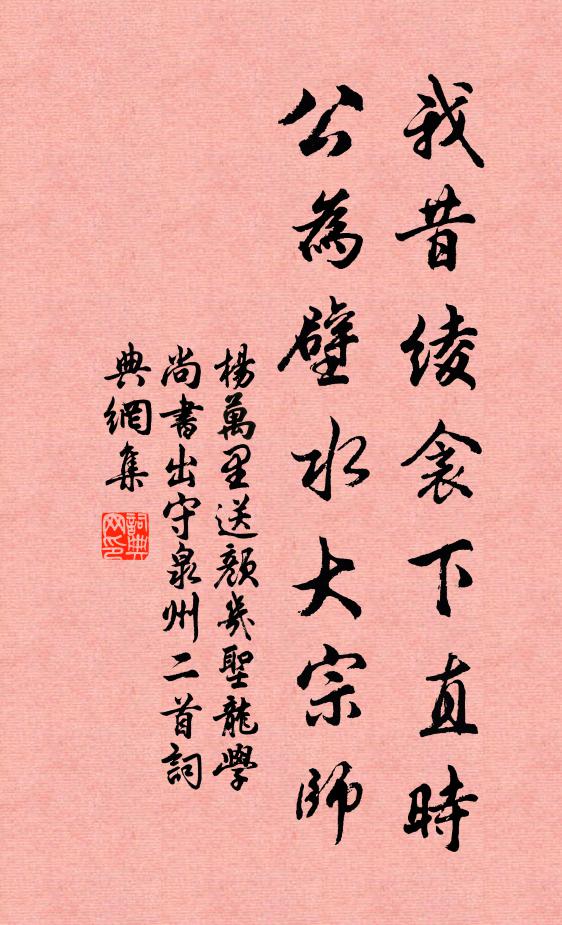 我昔綾衾下直時
公為璧水大宗師
楊萬里送顏幾聖龍學
尚書出守泉州二首詞
典網集
詞典
网印